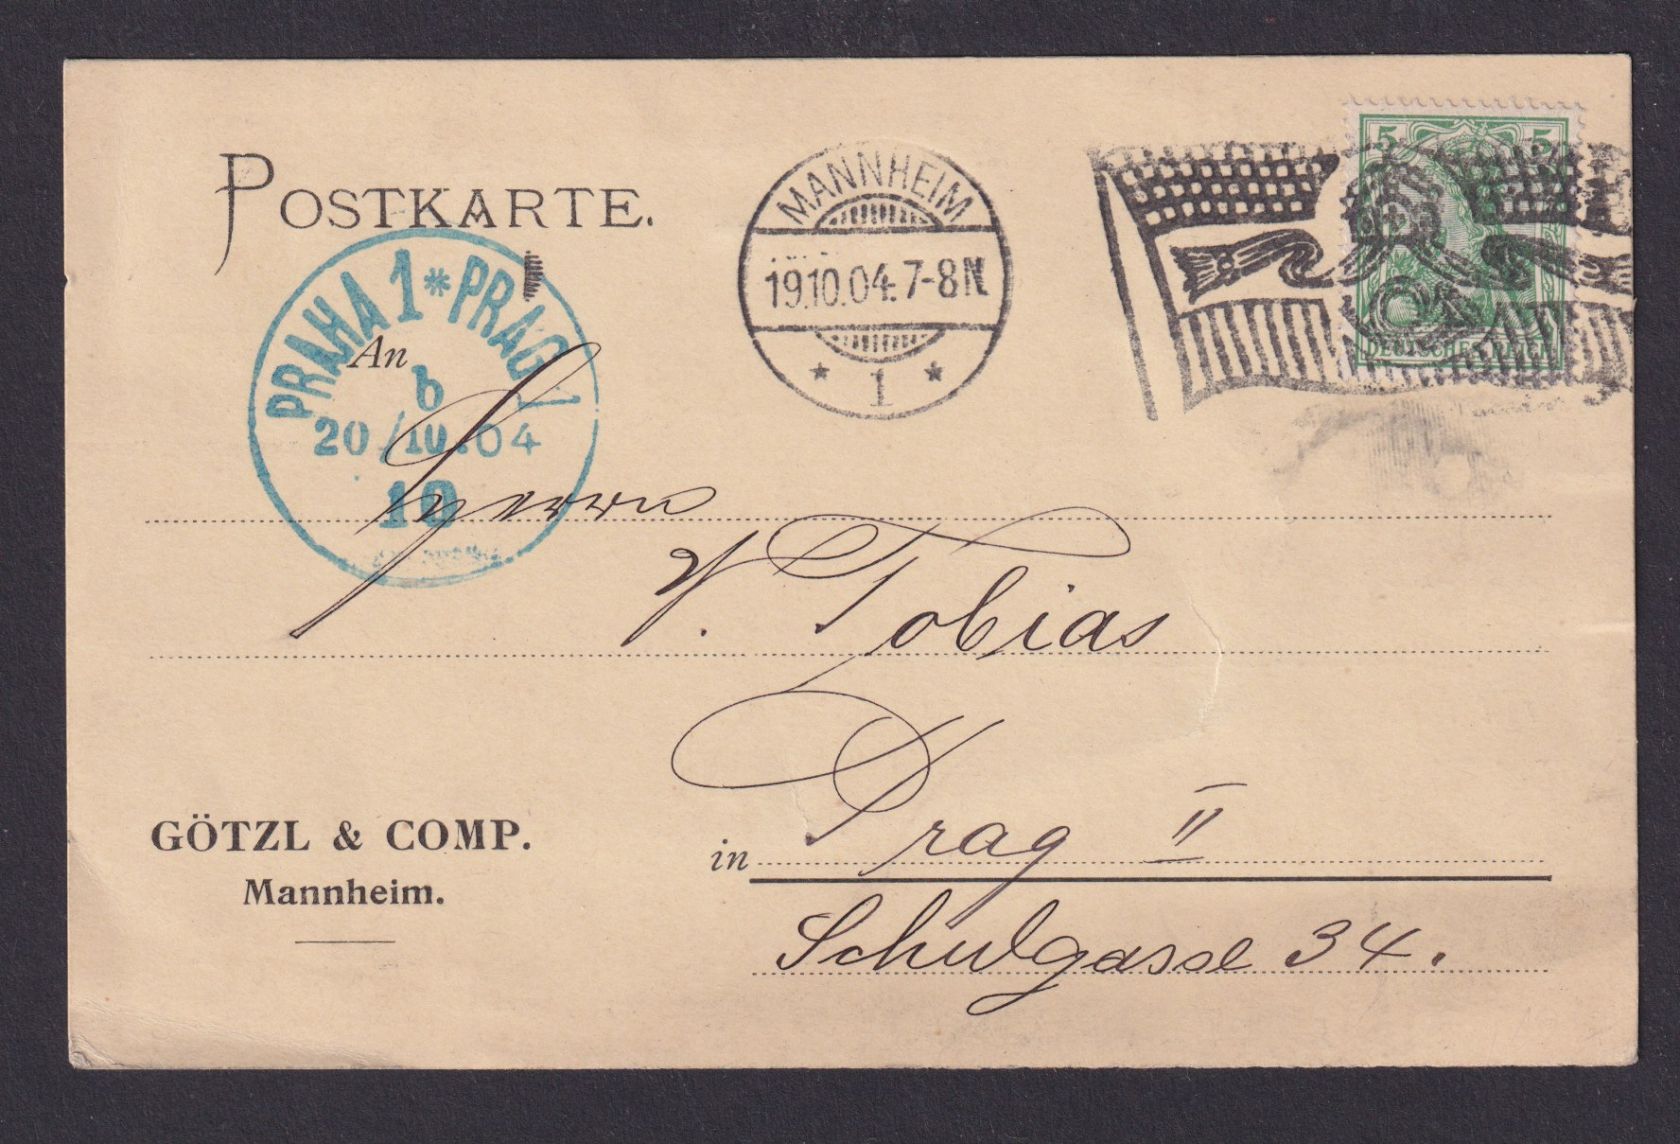 POSTKARTE.
MANNHEIM
19.10.04. 7-8 N
* 1 *
5 5
DEUTSCHES REICH
PRAHA 1 * PRAG 1
An
b
20/10.04
10
Herrn
Tobias
in Prag II
Schulgasse 34.
GÖTZL & COMP.
Mannheim.